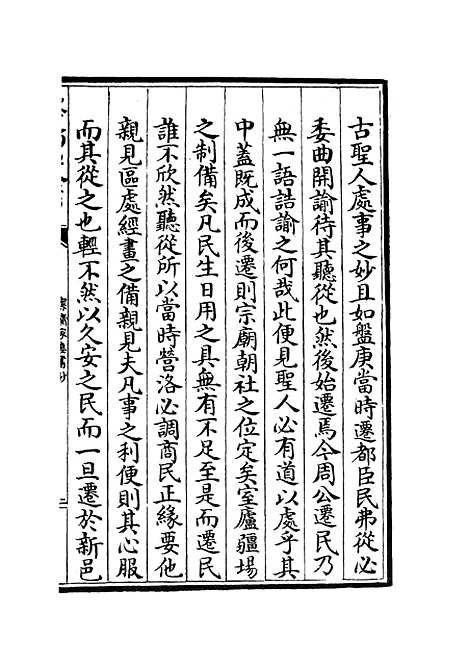 古聖人處事之妙且如盤庚當時遷都臣民弗從必
委曲開諭待其聽從也然後始遷焉今周公遷民乃
無一語誥諭之何哉此便見聖人必有道以處乎其
中蓋既成而後遷則宗廟朝社之位定矣室廬疆場
之制備矣凡民生日用之具無有不足至是而遷民
誰不欣然聽從所以當時營洛必調商民正緣要他
親見區處經畫之備親見夫凡事之利便則其心服
而其從之也輕不然以久安之民而一旦遷於新邑